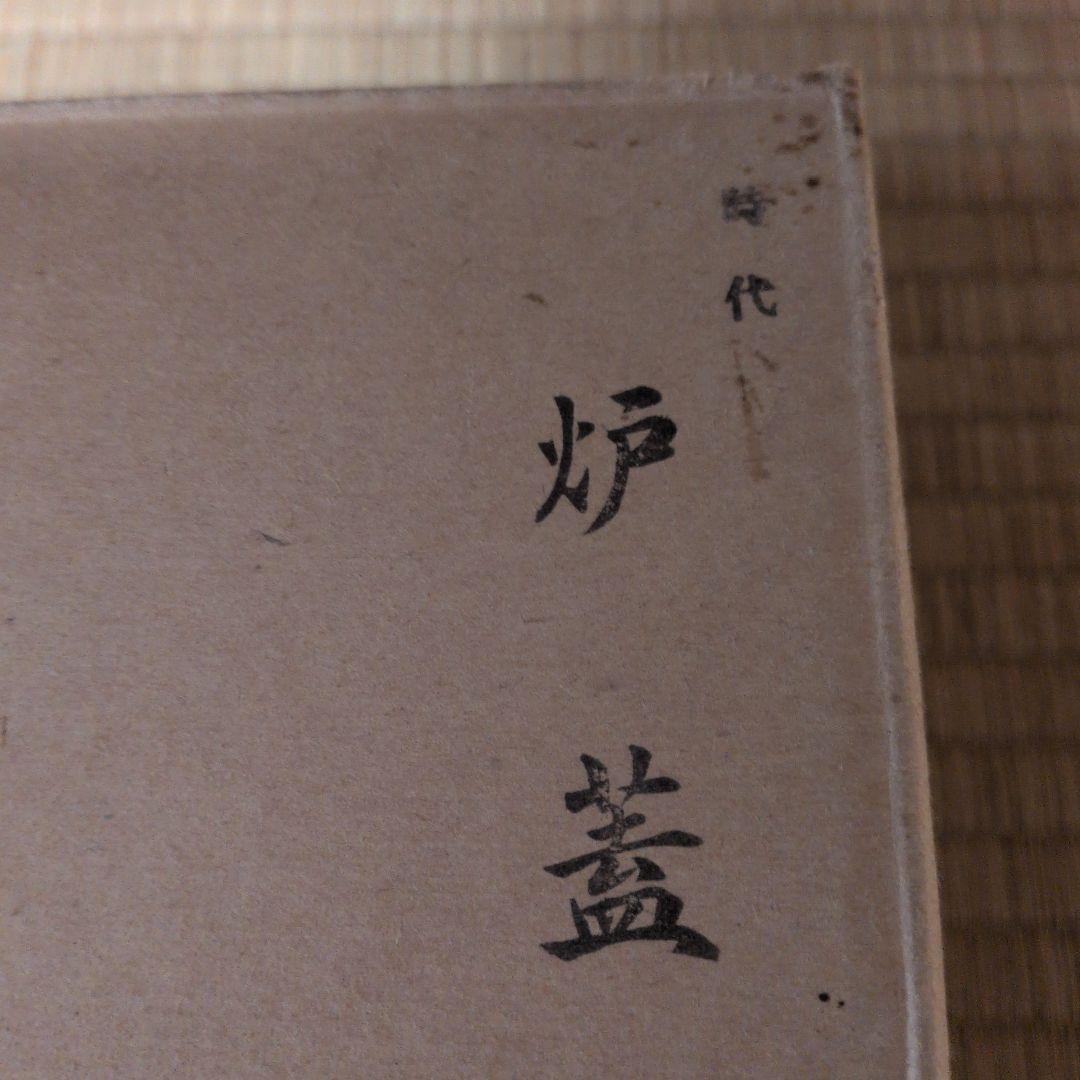 時代
炉蓋